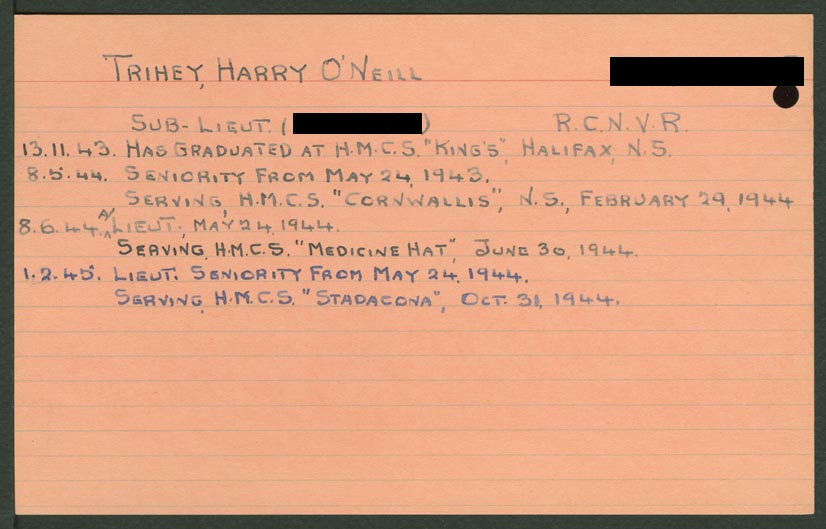 TRIHEY, HARRY O'NEILL
SUB-LIEUT. ( ) R.C.N.V.R.
13.11.43. HAS GRADUATED AT H.M.C.S. "KING'S", HALIFAX, N.S.
8.5.44. SENIORITY FROM MAY 24, 1943.
SERVING, H.M.C.S. "CORNWALLIS", N.S., FEBRUARY 29, 1944
8.6.44. A/LIEUT., MAY 24, 1944.
SERVING, H.M.C.S. "MEDICINE HAT", JUNE 30, 1944.
1.2.45. LIEUT. SENIORITY FROM MAY 24, 1944.
SERVING, H.M.C.S. "STADACONA", OCT. 31, 1944.